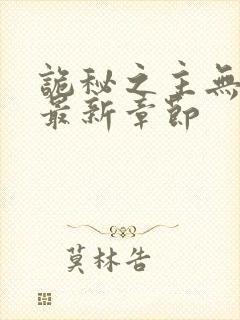 詭秘之主無
最新章節
莫林告